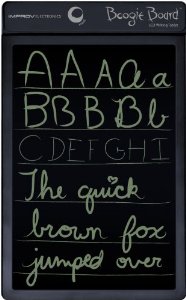 IMPROV ELECTRONICS Boogie Board
LCD Writing Tablet
A A a a
B B B b
C D E F G H I
The quick
brown fox
jumped over